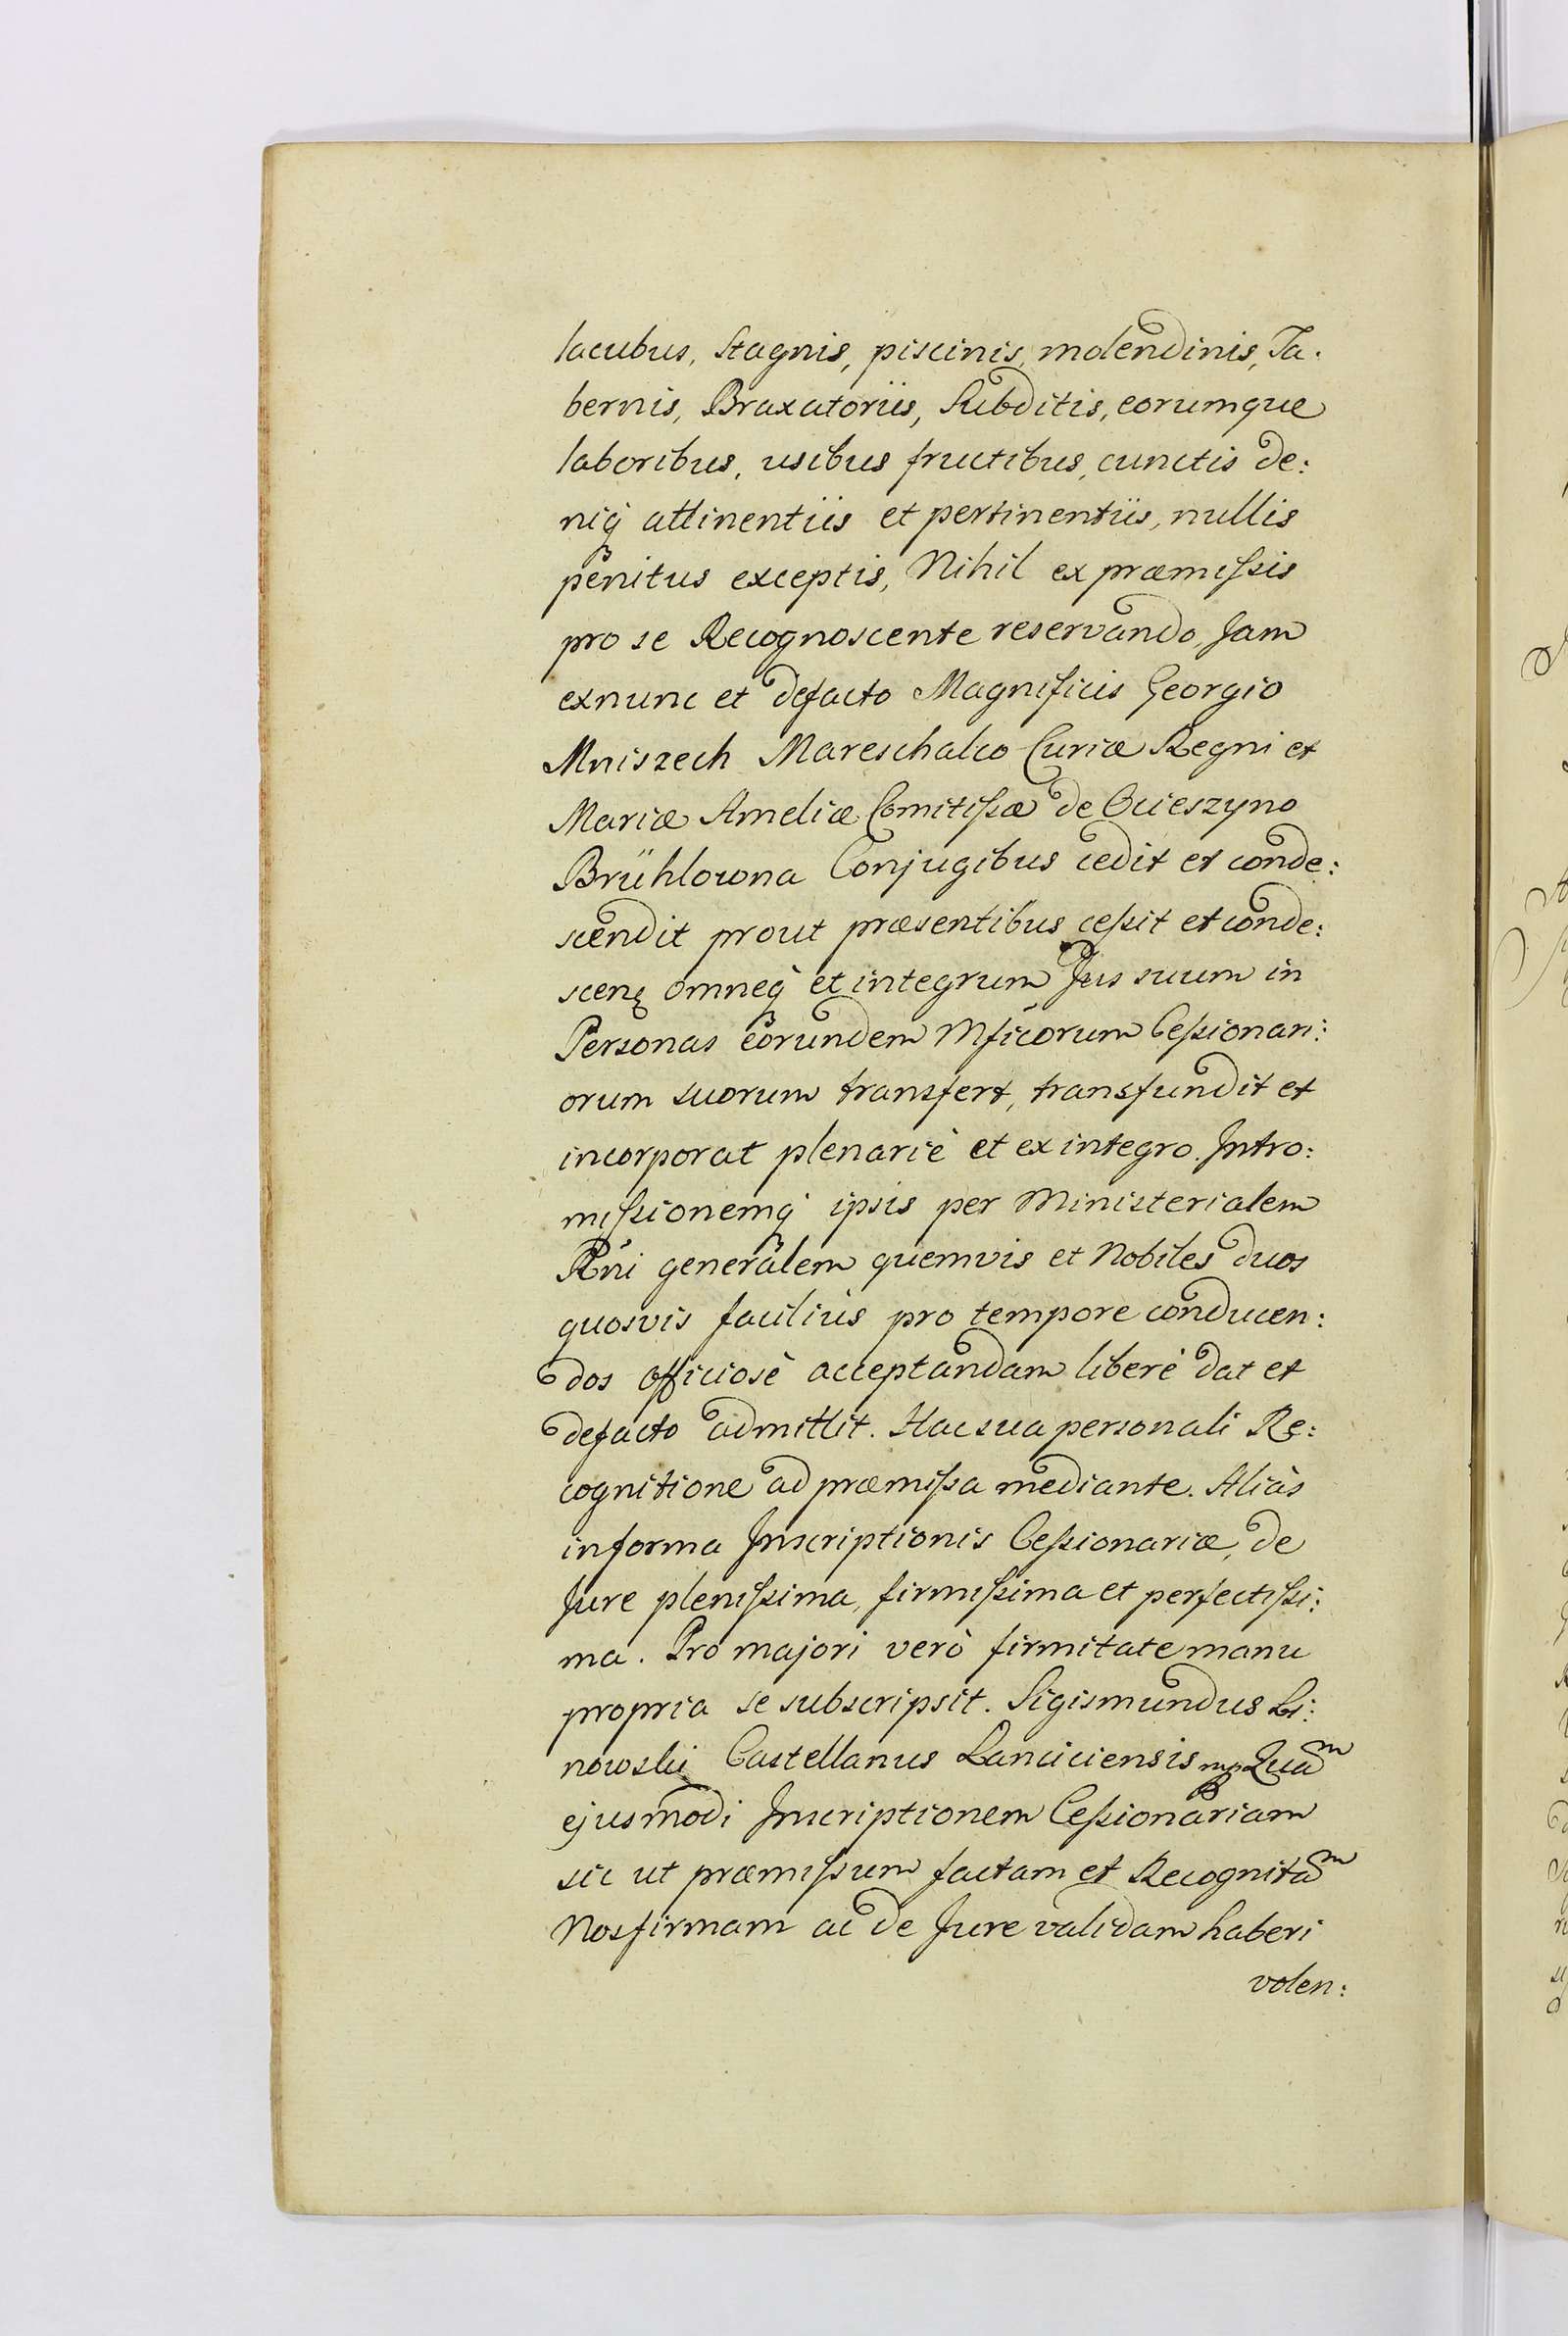 lacubus, Stagnis, piscinis, molendinis, Ta:
bernis, Braxatoriis, Subditis, eorumque
laboribus, usibus fructibus, cunctis de:
niq́ attinentiis et pertinentiis, nullis
penitus exceptis, Nihil ex præmissis
pro se Recognoscente reservando, Jam
exnunc et defacto Magnificis Georgio
Mniszech Mareschalco Curiæ Regni et
Mariæ Ameliæ Comitissæ de Ocieszyno
Brühlowna Conjugibus cedit et conde:
scendit prout præsentibus cessit et conde:
scenę omneq́ et integrum Jus suum in
Personas eorundem Mficorum Cessionari:
orum suorum transfert, transfundit et
incorporat plenariè et ex integro. Intro:
missionemq́ ipsis per Ministerialem
Rńi generalem quemvis et Nobiles duos
quosvis faciliùs pro tempore conducen:
dos officiosè acceptandam liberè dat et
defacto admittit. Hac sua personali Re:
cognitione ad præmissa mediante. Aliàs
informa Inscriptionis Cessionariæ, de
Jure plenissima, firmissima et perfectissi:
ma. Pro majori verò firmitate manu
propria se subscripsit. Sigismundus Li:
nowski Castellanus Lanciciensis mp Quam
ejusmodi Inscriptionem Cessionariam
sic ut præmissum factam et Recognitam
Nos firmam ac de Jure validam haberi
volen: